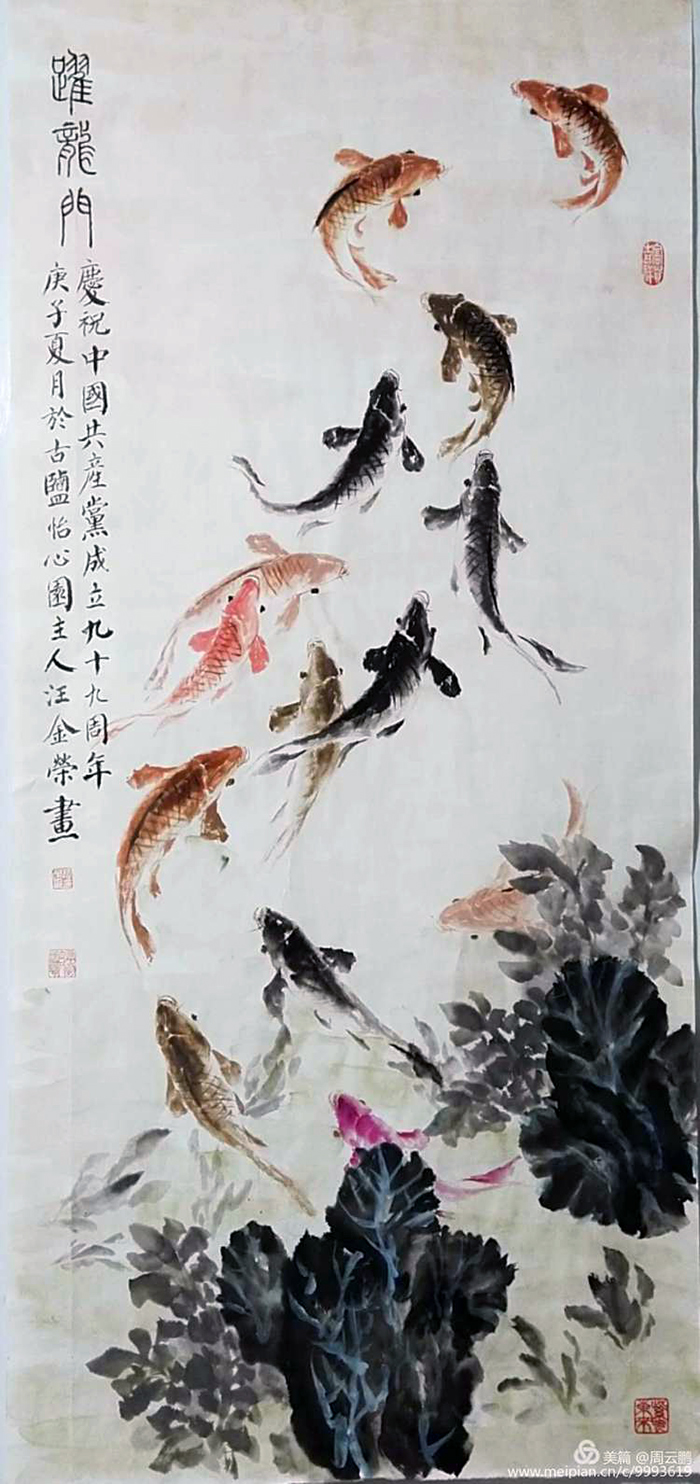 躍龍門
慶祝中國共產黨成立九十九周年
庚子夏月於古鹽怡心園主人汪金榮畫
美篇 @周云鹏
www.meipian.cn/c/9993619